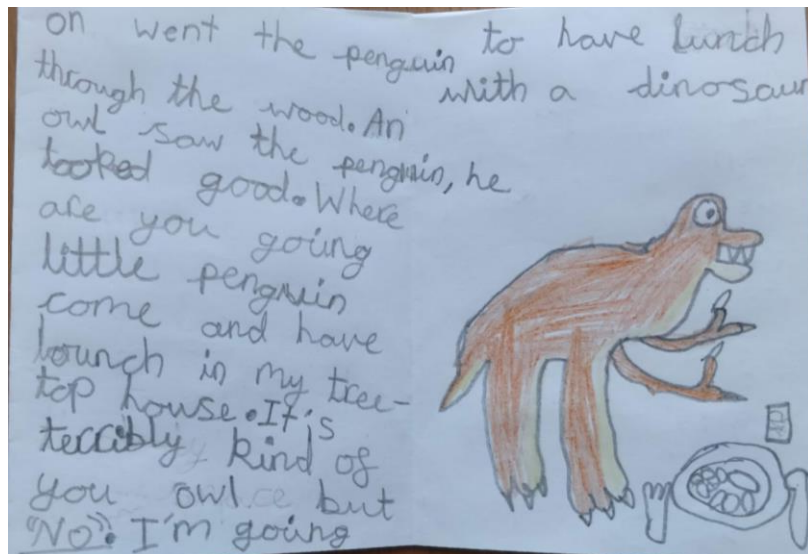 on went the penguin
through the wood. An
owl saw the penguin, he
looked good. Where
are you going
little penguin
come and have
lounch in my tree-
top house. It's
terribly kind of
you owl but
"No". I'm going
to have lunch
with a dinosaur